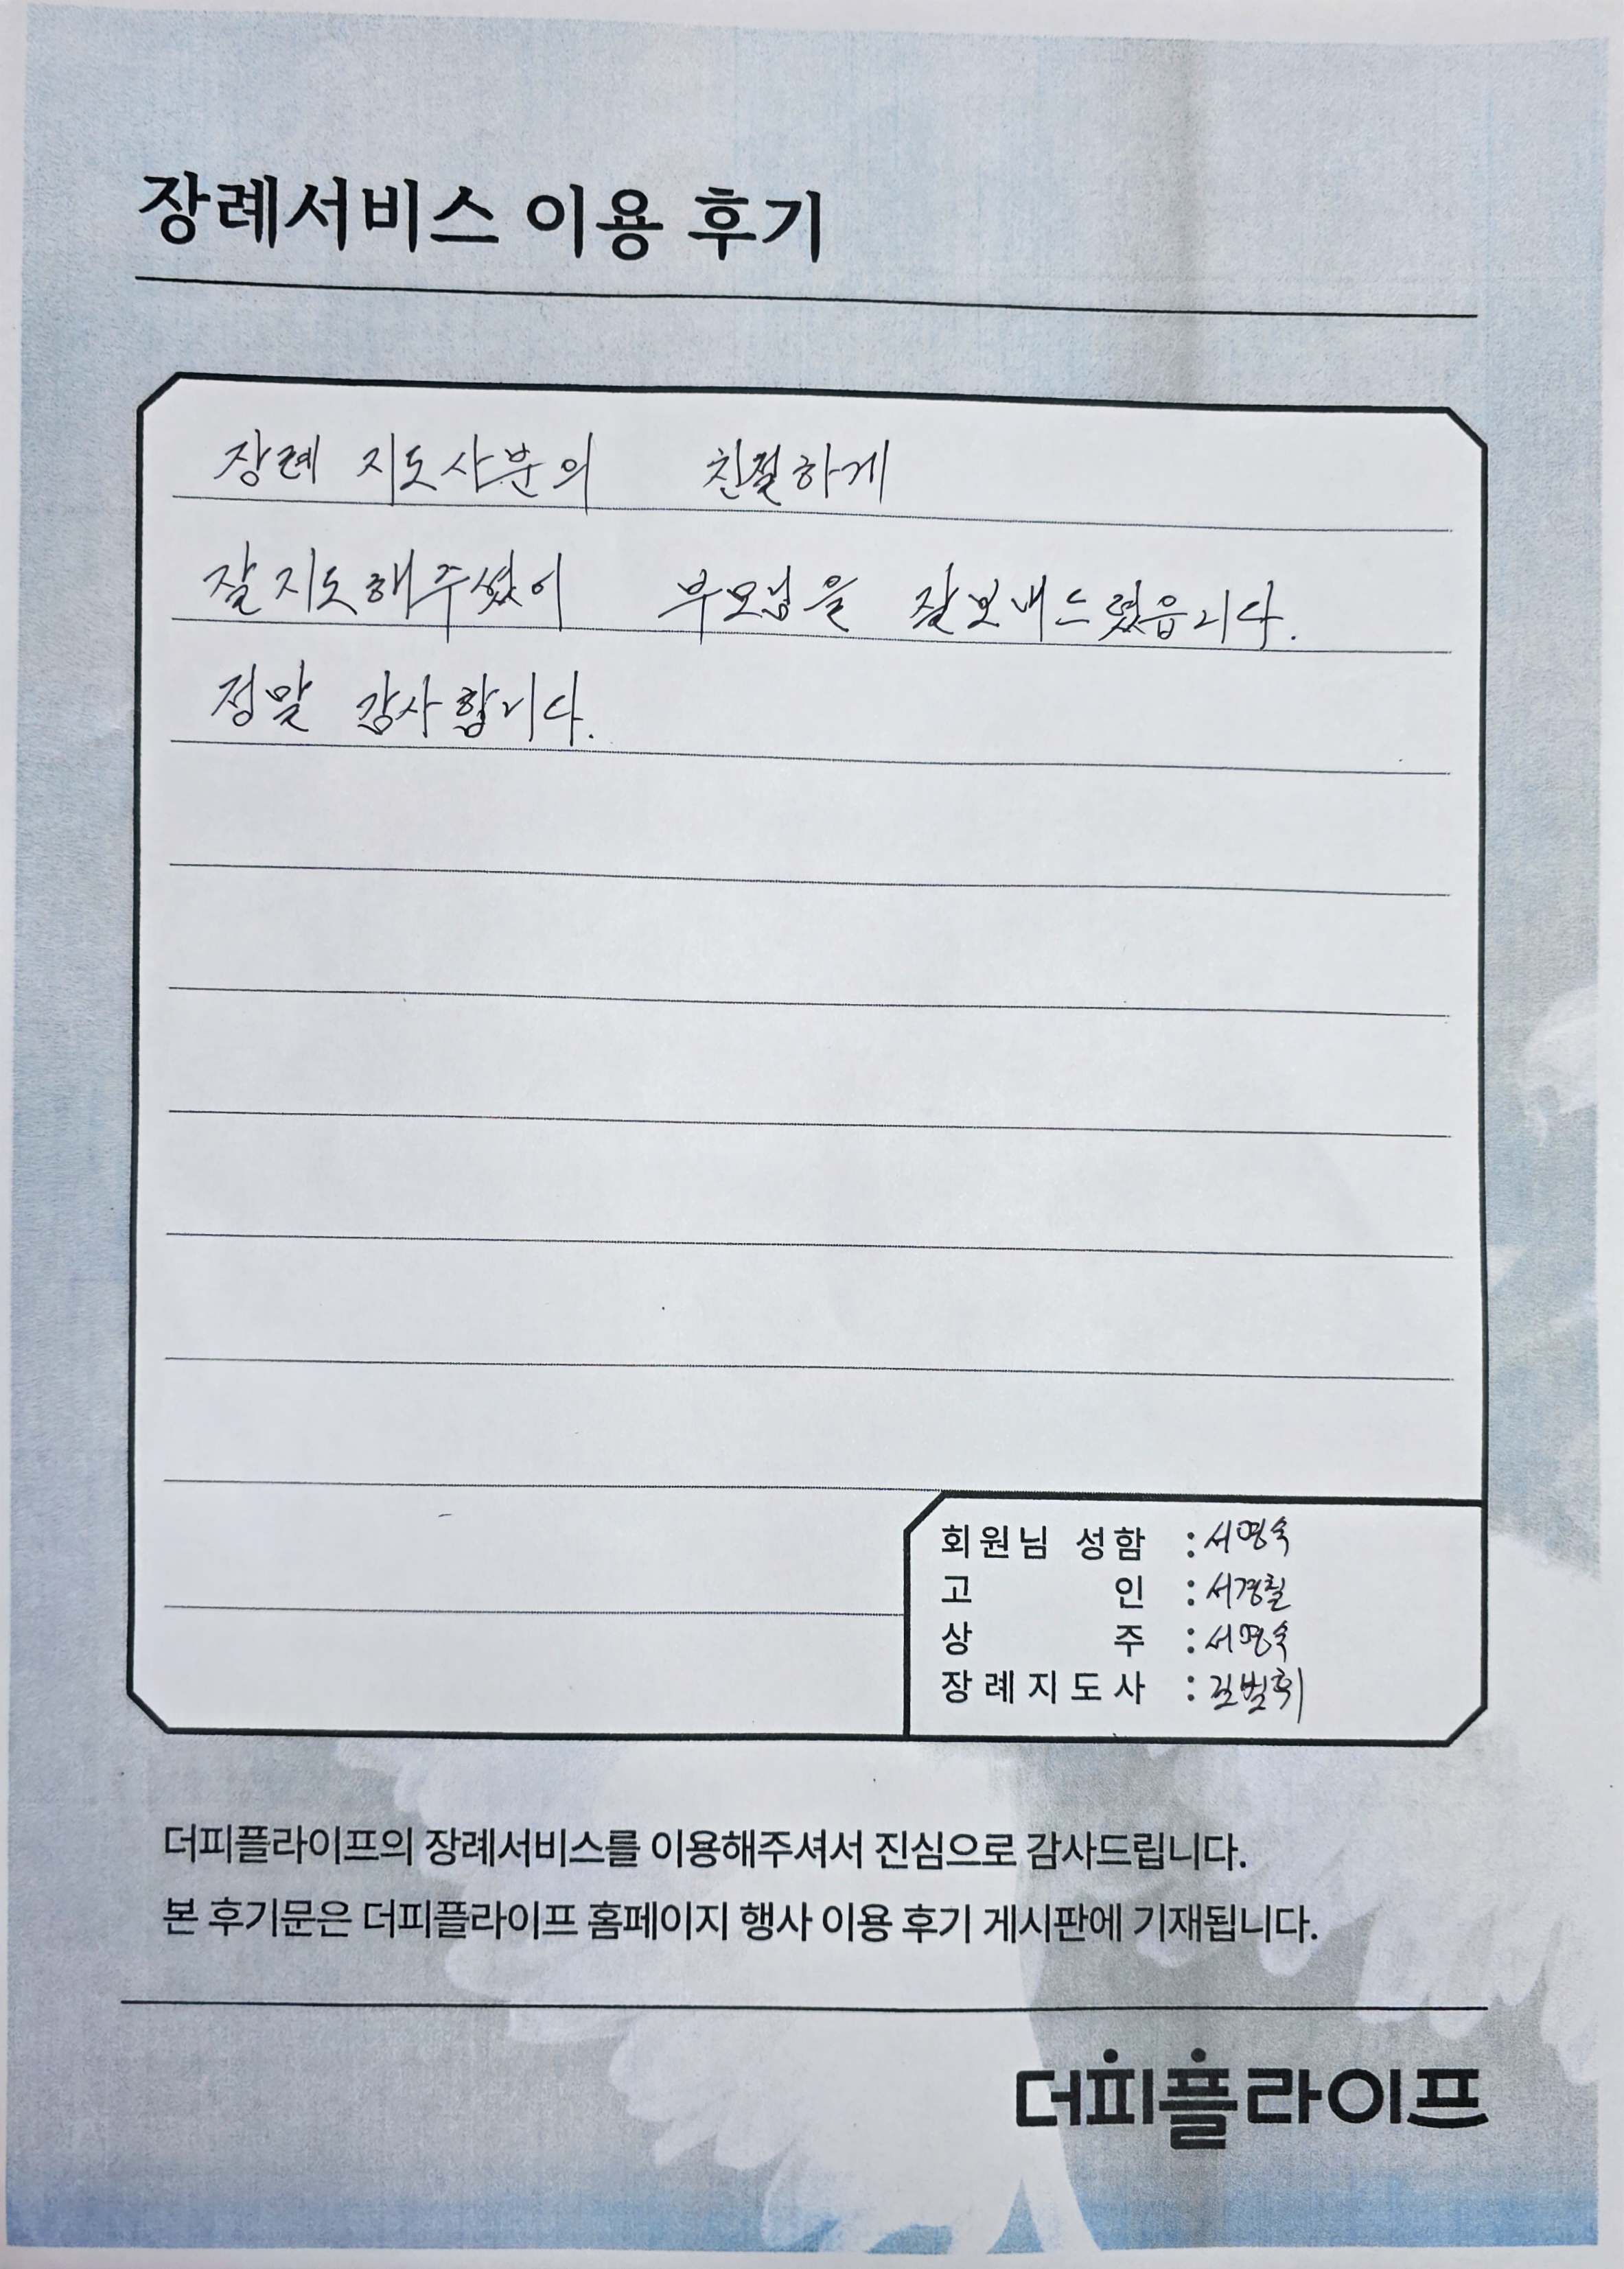 장례서비스 이용 후기
장례 지도사분의 친절하게
잘지도해주셨이 부모님을 잘보내드렸읍니다.
정말 감사합니다.
회원님 성함 : 서영숙
고 인 : 서경칠
상 주 : 서영숙
장례지도사 :
더피플라이프의 장례서비스를 이용해주셔서 진심으로 감사드립니다.
본 후기문은 더피플라이프 홈페이지 행사 이용 후기 게시판에 기재됩니다.
더피플라이프